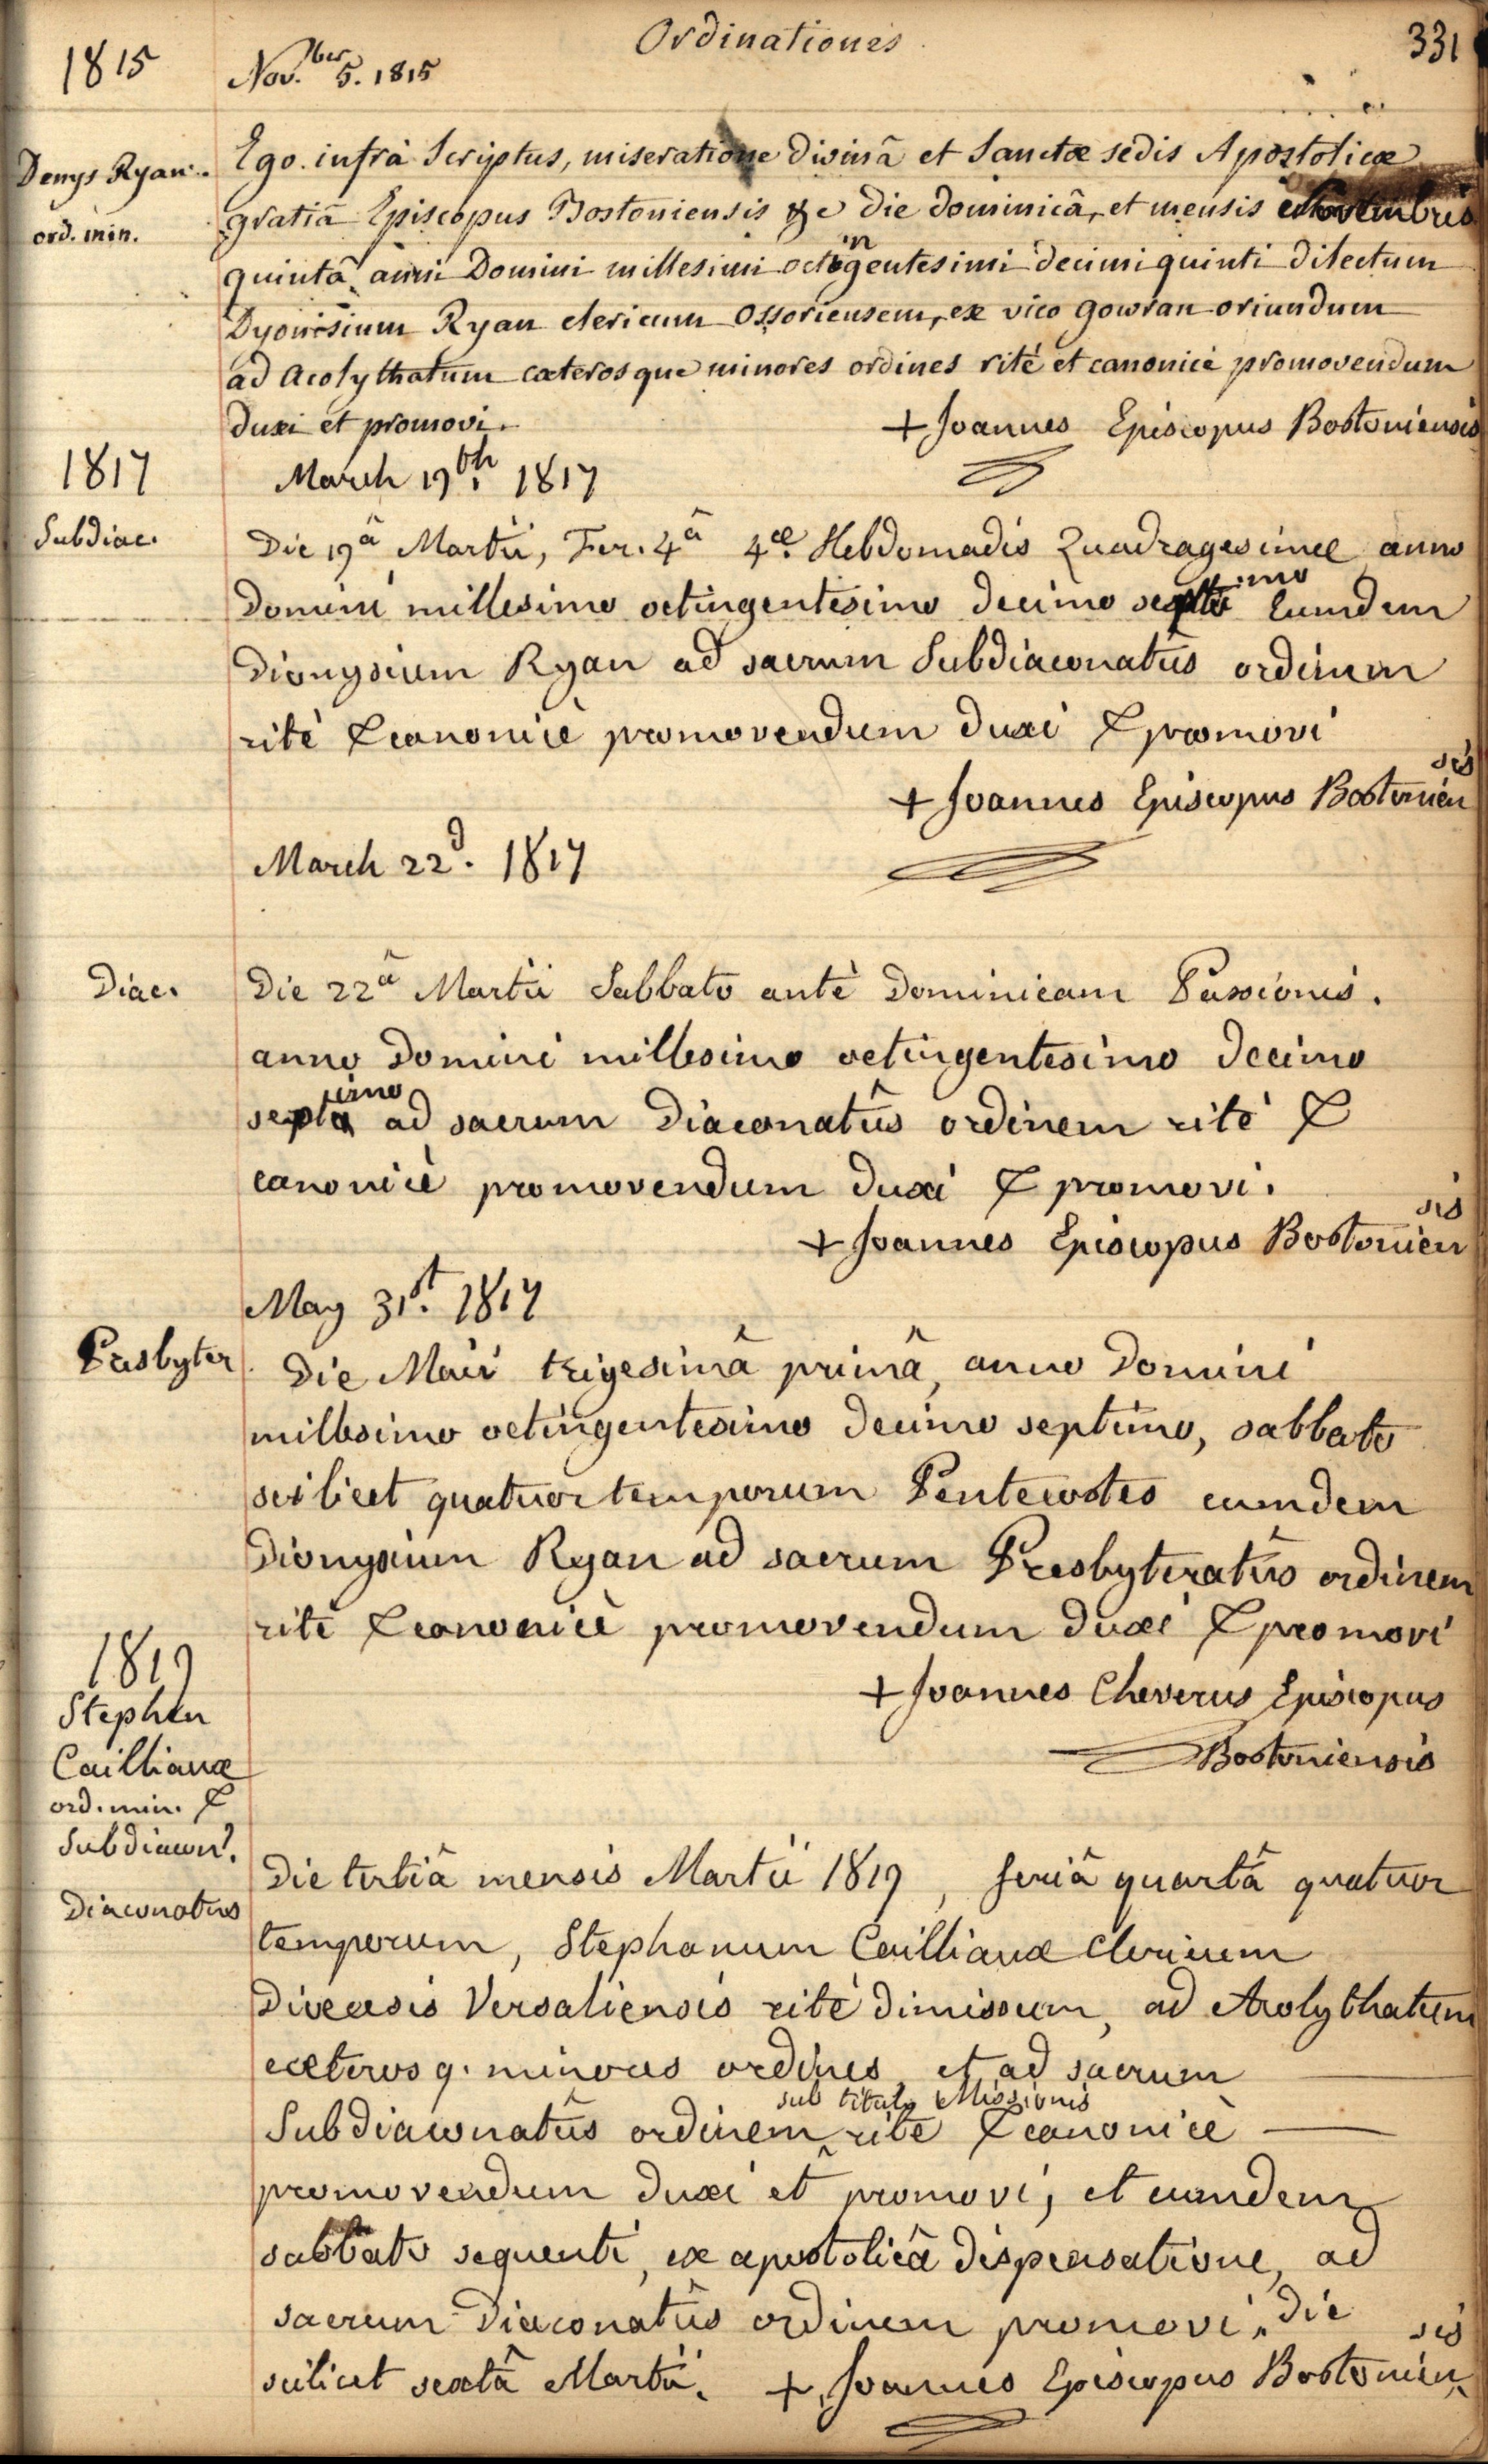 Ordinationes.
331
1815
Nov.ber 5. 1815
Denys Ryan.
ord. min.
Ego infrà Scriptus, miseratione divinâ et Sanctæ sedis Apostolicæ
gratiâ Episcopus Bostoniensis &c die dominicâ, et mensis Novembris
quintâ, anni Domini millesimi octingentesimi decimi quinti dilectum
Dyonisium Ryan clericum Ossoriensem, ex vico Gowran oriundum
ad Acolythatum cæterosque minores ordines ritè et canonicè promovendum
duxi et promovi.
+ Joannes Episcopus Bostoniensis
1817
March 19th. 1817
Subdiac.
Die 19â Martii, Fer. 4â 4æ Hebdomadis Quadragesimæ anno
Domini millesimo octingentesimo decimo septimo Eumdem
Dionysium Ryan ad sacrum Subdiaconatûs ordinem
ritè & canonicè promovendum duxi & promovi
+ Joannes Episcopus Bostoniensis
March 22d. 1817
Diac.
Die 22â Martii Sabbato antè Dominicam Passionis.
anno Domini millesimo octingentesimo decimo
septimo ad sacrum Diaconatûs ordinem ritè &
canonicè promovendum duxi & promovi.
+ Joannes Episcopus Bostoniensis
May 31st. 1817
Presbyter.
Die Maii trigesimâ primâ, anno Domini
millesimo octingentesimo decimo septimo, sabbato
scilicet quatuor temporum Pentecostes eumdem
Dionysium Ryan ad sacrum Presbyteratûs ordinem
ritè & canonicè promovendum duxi & promovi
+ Joannes Cheverus Episcopus
Bostoniensis
1819
Stephen
Cailliaux
ord. min. &
Subdiacon?.
Diaconatus
Die tertiâ mensis Martii 1819, feriâ quartâ quatuor
temporum, Stephanum Cailliaux clericum
Diœcesis Versaliensis ritè dimissum, ad Acolythatum
cæterosq. minores ordines et ad sacrum
sub titulo Missionis
Subdiaconatûs ordinem ritè & canonicè
promovendum duxi et promovi, et eumdem
sabbato sequenti, ex apostolicâ dispensatione, ad
sacrum Diaconatûs ordinem promovi, die
scilicet sextâ Martii. + Joannes Episcopus Bostoniensis